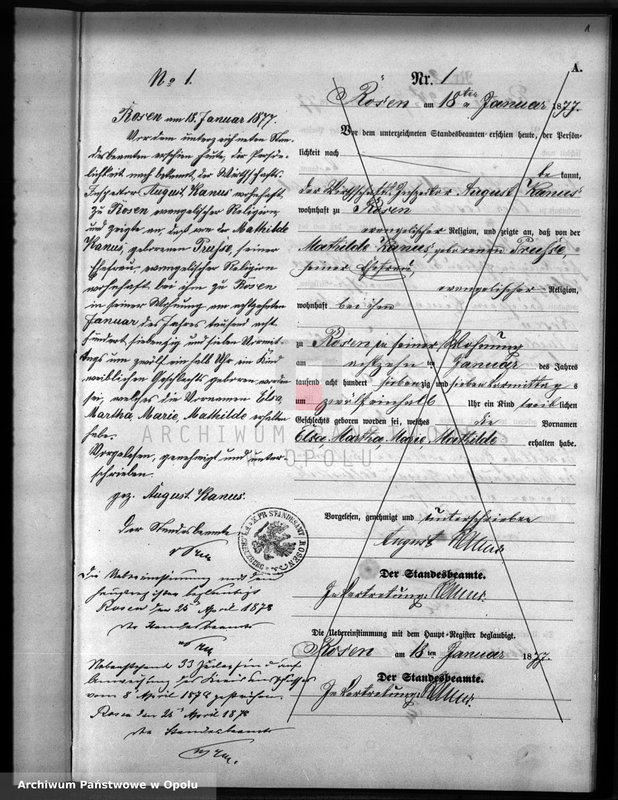 No 1.
Rosen am 18. Januar 1877.
Vor dem unterzeichneten Stan
desbeamten erschien heute, der Persön
lichkeit nach bekannt, der Wirthschafts
Inspektor August Kanus wohnhaft
zu Rosen evangelischer Religion
und zeigte an, daß von der Mathilde
Kanus, geborenen Preuße, seiner
Ehefrau, evangelischer Religion
wohnhaft bei ihm zu Rosen
in seiner Wohnung am achtzehnten
Januar des Jahres tausend acht
hundert siebenzig und sieben Vormit
tags um zwölf ein halb Uhr ein Kind
weiblichen Geschlechts geboren worden
sei, welches die Vornamen Elsa,
Martha Marie, Mathilde erhalten
habe.
Vorgelesen, genehmigt und unter
schrieben
gez. August Kanus.
Der Standesbeamte
Die Uebereinstimmung mit dem
Hauptregister beglaubigt
Rosen den 25 April 1878
Der Standesbeamte
vom 8 April 1878 gestrichen.
Rosen den 25 April 1878
Der Standesbeamte
1
A.
Nr. 1
Rosen am 18ten Januar 1877.
Vor dem unterzeichneten Standesbeamten erschien heute, der Persön-
lichkeit nach
be kannt,
der Wirthschafts Inspektor August Kanus
wohnhaft zu Rosen
evangelischer Religion, und zeigte an, daß von der
Mathilde Kanus geborenen Preuße,
seiner Ehefrau,
evangelischer Religion,
wohnhaft bei ihm
zu Rosen in seiner Wohnung
am achtzehn ten Januar des Jahres
tausend acht hundert siebenzig und sieben Vormittag s
um zwölf einhalb Uhr ein Kind weib lichen
Geschlechts geboren worden sei, welches die Vornamen
Elsa Martha Marie Mathilde erhalten habe.
Vorgelesen, genehmigt und unterschrieben
August Kanus
Der Standesbeamte.
In Vertretung:
Die Uebereinstimmung mit dem Haupt-Register beglaubigt.
Rosen am 18ten Januar 1877.
Der Standesbeamte.
In Vertretung:
ARCHIWUM PAŃSTWOWE
W OPOLU
Archiwum Państwowe w Opolu